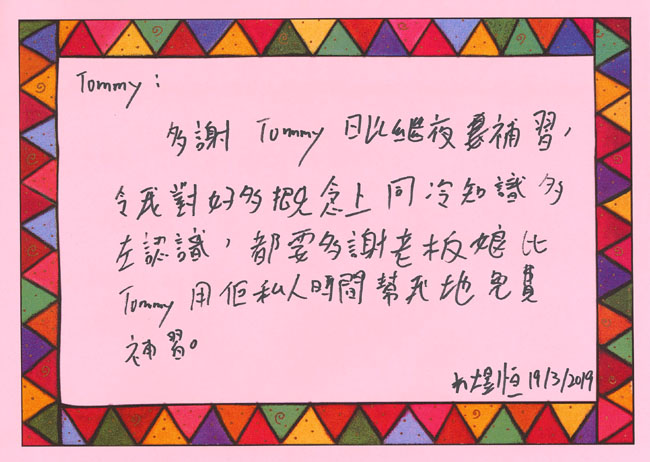 Tommy:
多謝 Tommy 日以繼夜要補習,
令我對好多概念上同冷知識多
左認識, 都要多謝老板娘比
Tommy 用佢私人時間幫我地免費
補習。
恒 19/3/2019